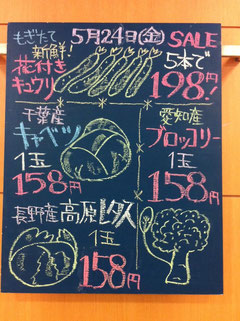 もぎたて 5月24日(金) SALE
新鮮!
花付き
キュウリ
5本で
198円!
千葉産
キャベツ
1玉
158円
愛知産
ブロッコリー
1玉
158円
長野産高原レタス
1玉
158円